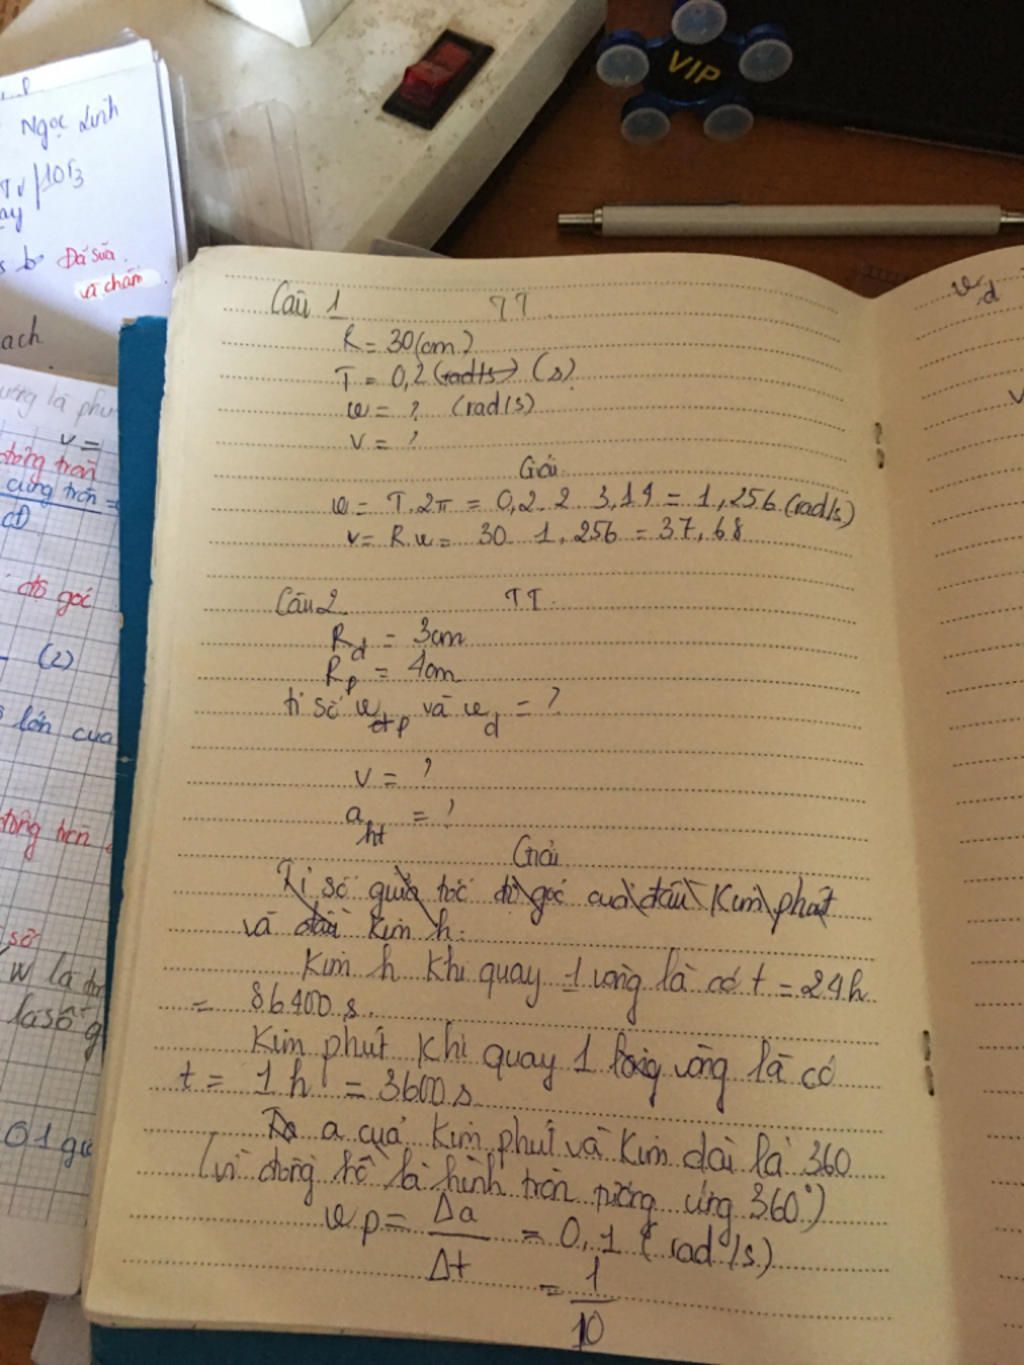 VIP
Ngọc Linh
10T3
ay
Đã sửa
và chấm
ach
v =
cung tròn =
độ góc
(2)
số lớn của
W là
là số g
Câu 1 TT
R = 30(cm)
T = 0,2 (rad/s) (s)
ω = ? (rad/s)
v = ?
Giải
ω = T.2π = 0,2.2.3,14 = 1,256 (rad/s)
v = R.ω = 30.1,256 = 37,68
Câu 2. TT.
R_d = 3cm
R_p = 4cm
tỉ số ω_p và ω_d = ?
v = ?
a_ht = ?
Giải
Tỉ số giữa tốc độ góc của đầu kim phút
và đầu kim h.
Kim h khi quay 1 vòng là có t = 24h
= 86400 s.
Kim phút khi quay 1 vòng là có
t = 1h = 3600 s
a của kim phút và kim dài là 360
(vì đồng hồ là hình tròn tương ứng 360°)
ω p = Δa/Δt = 0,1 (rad/s)
= 1/10
v_d